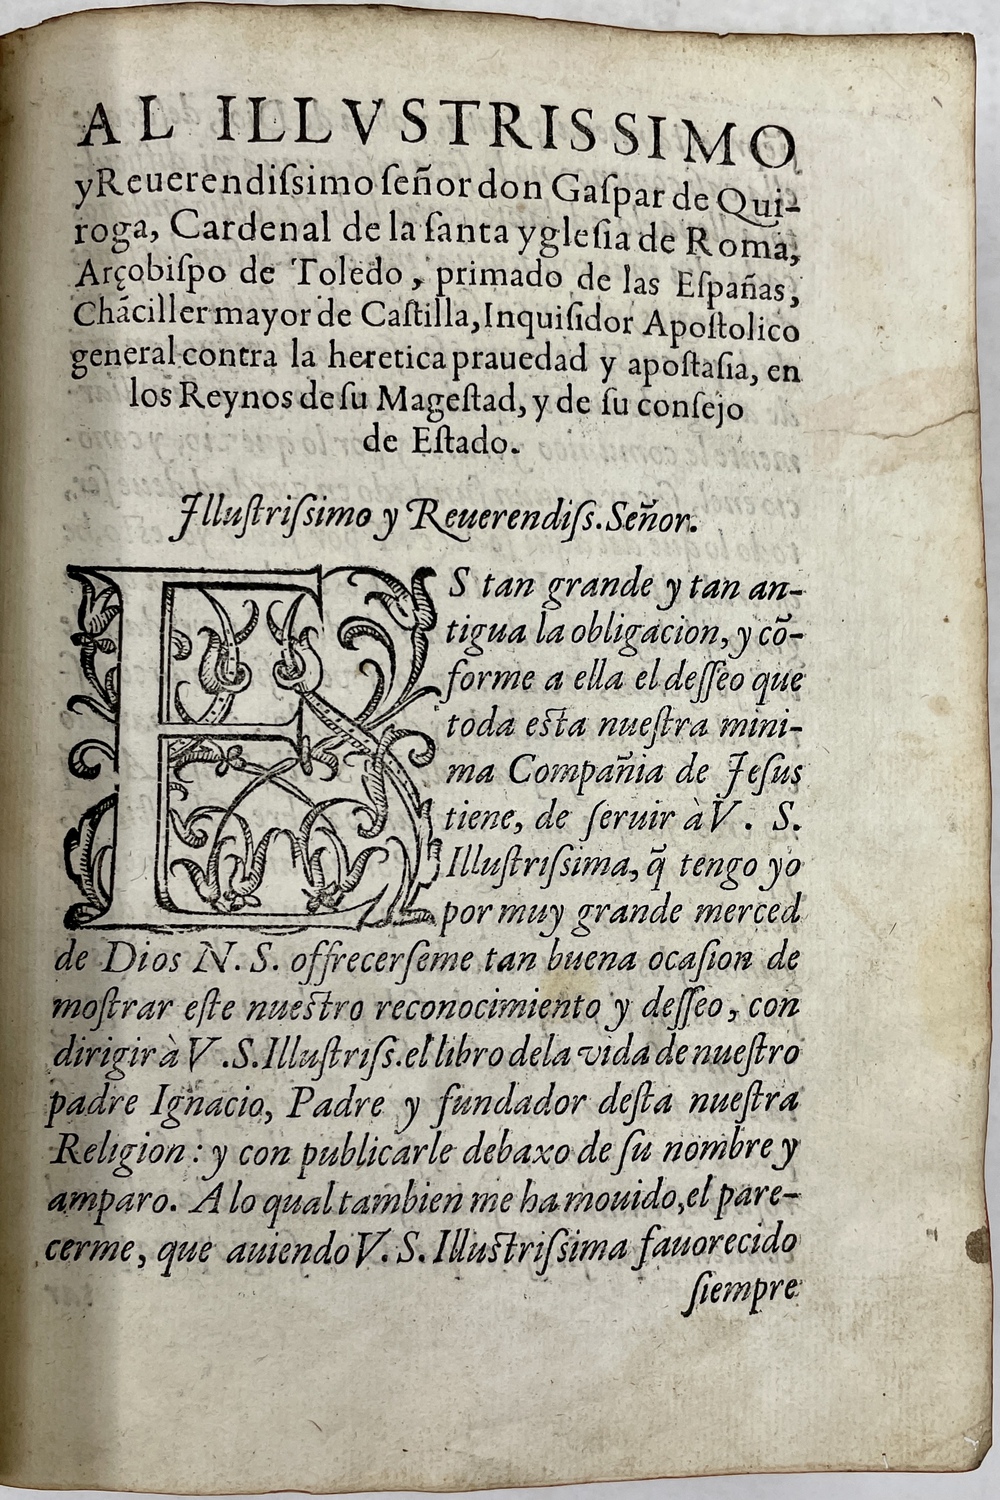 AL ILLVSTRISSIMO
y Reuerendiſsimo ſeñor don Gaſpar de Qui-
roga, Cardenal de la ſanta ygleſia de Roma,
Arçobiſpo de Toledo, primado de las Eſpañas,
Chãciller mayor de Caſtilla, Inquiſidor Apoſtolico
general contra la heretica prauedad y apoſtaſia, en
los Reynos de ſu Mageſtad, y de ſu conſejo
de Eſtado.
Illuſtriſsimo y Reuerendiſs. Señor.
ES tan grande y tan an-
tigua la obligacion, y cõ-
forme a ella el deſſeo que
toda esta nueſtra mini-
ma Compañia de Jeſus
tiene, de ſeruir à V. S.
Illuſtriſsima, q̃ tengo yo
por muy grande merced
de Dios N. S. offrecerſeme tan buena ocaſion de
moſtrar eſte nuestro reconocimiento y deſſeo, con
dirigir à V. S. Illuſtriſs. el libro de la vida de nueſtro
padre Ignacio, Padre y fundador deſta nueſtra
Religion: y con publicarle debaxo de ſu nombre y
amparo. A lo qual tambien me ha mouido, el pare-
cerme, que auiendo V. S. Illustriſsima fauorecido
ſiempre